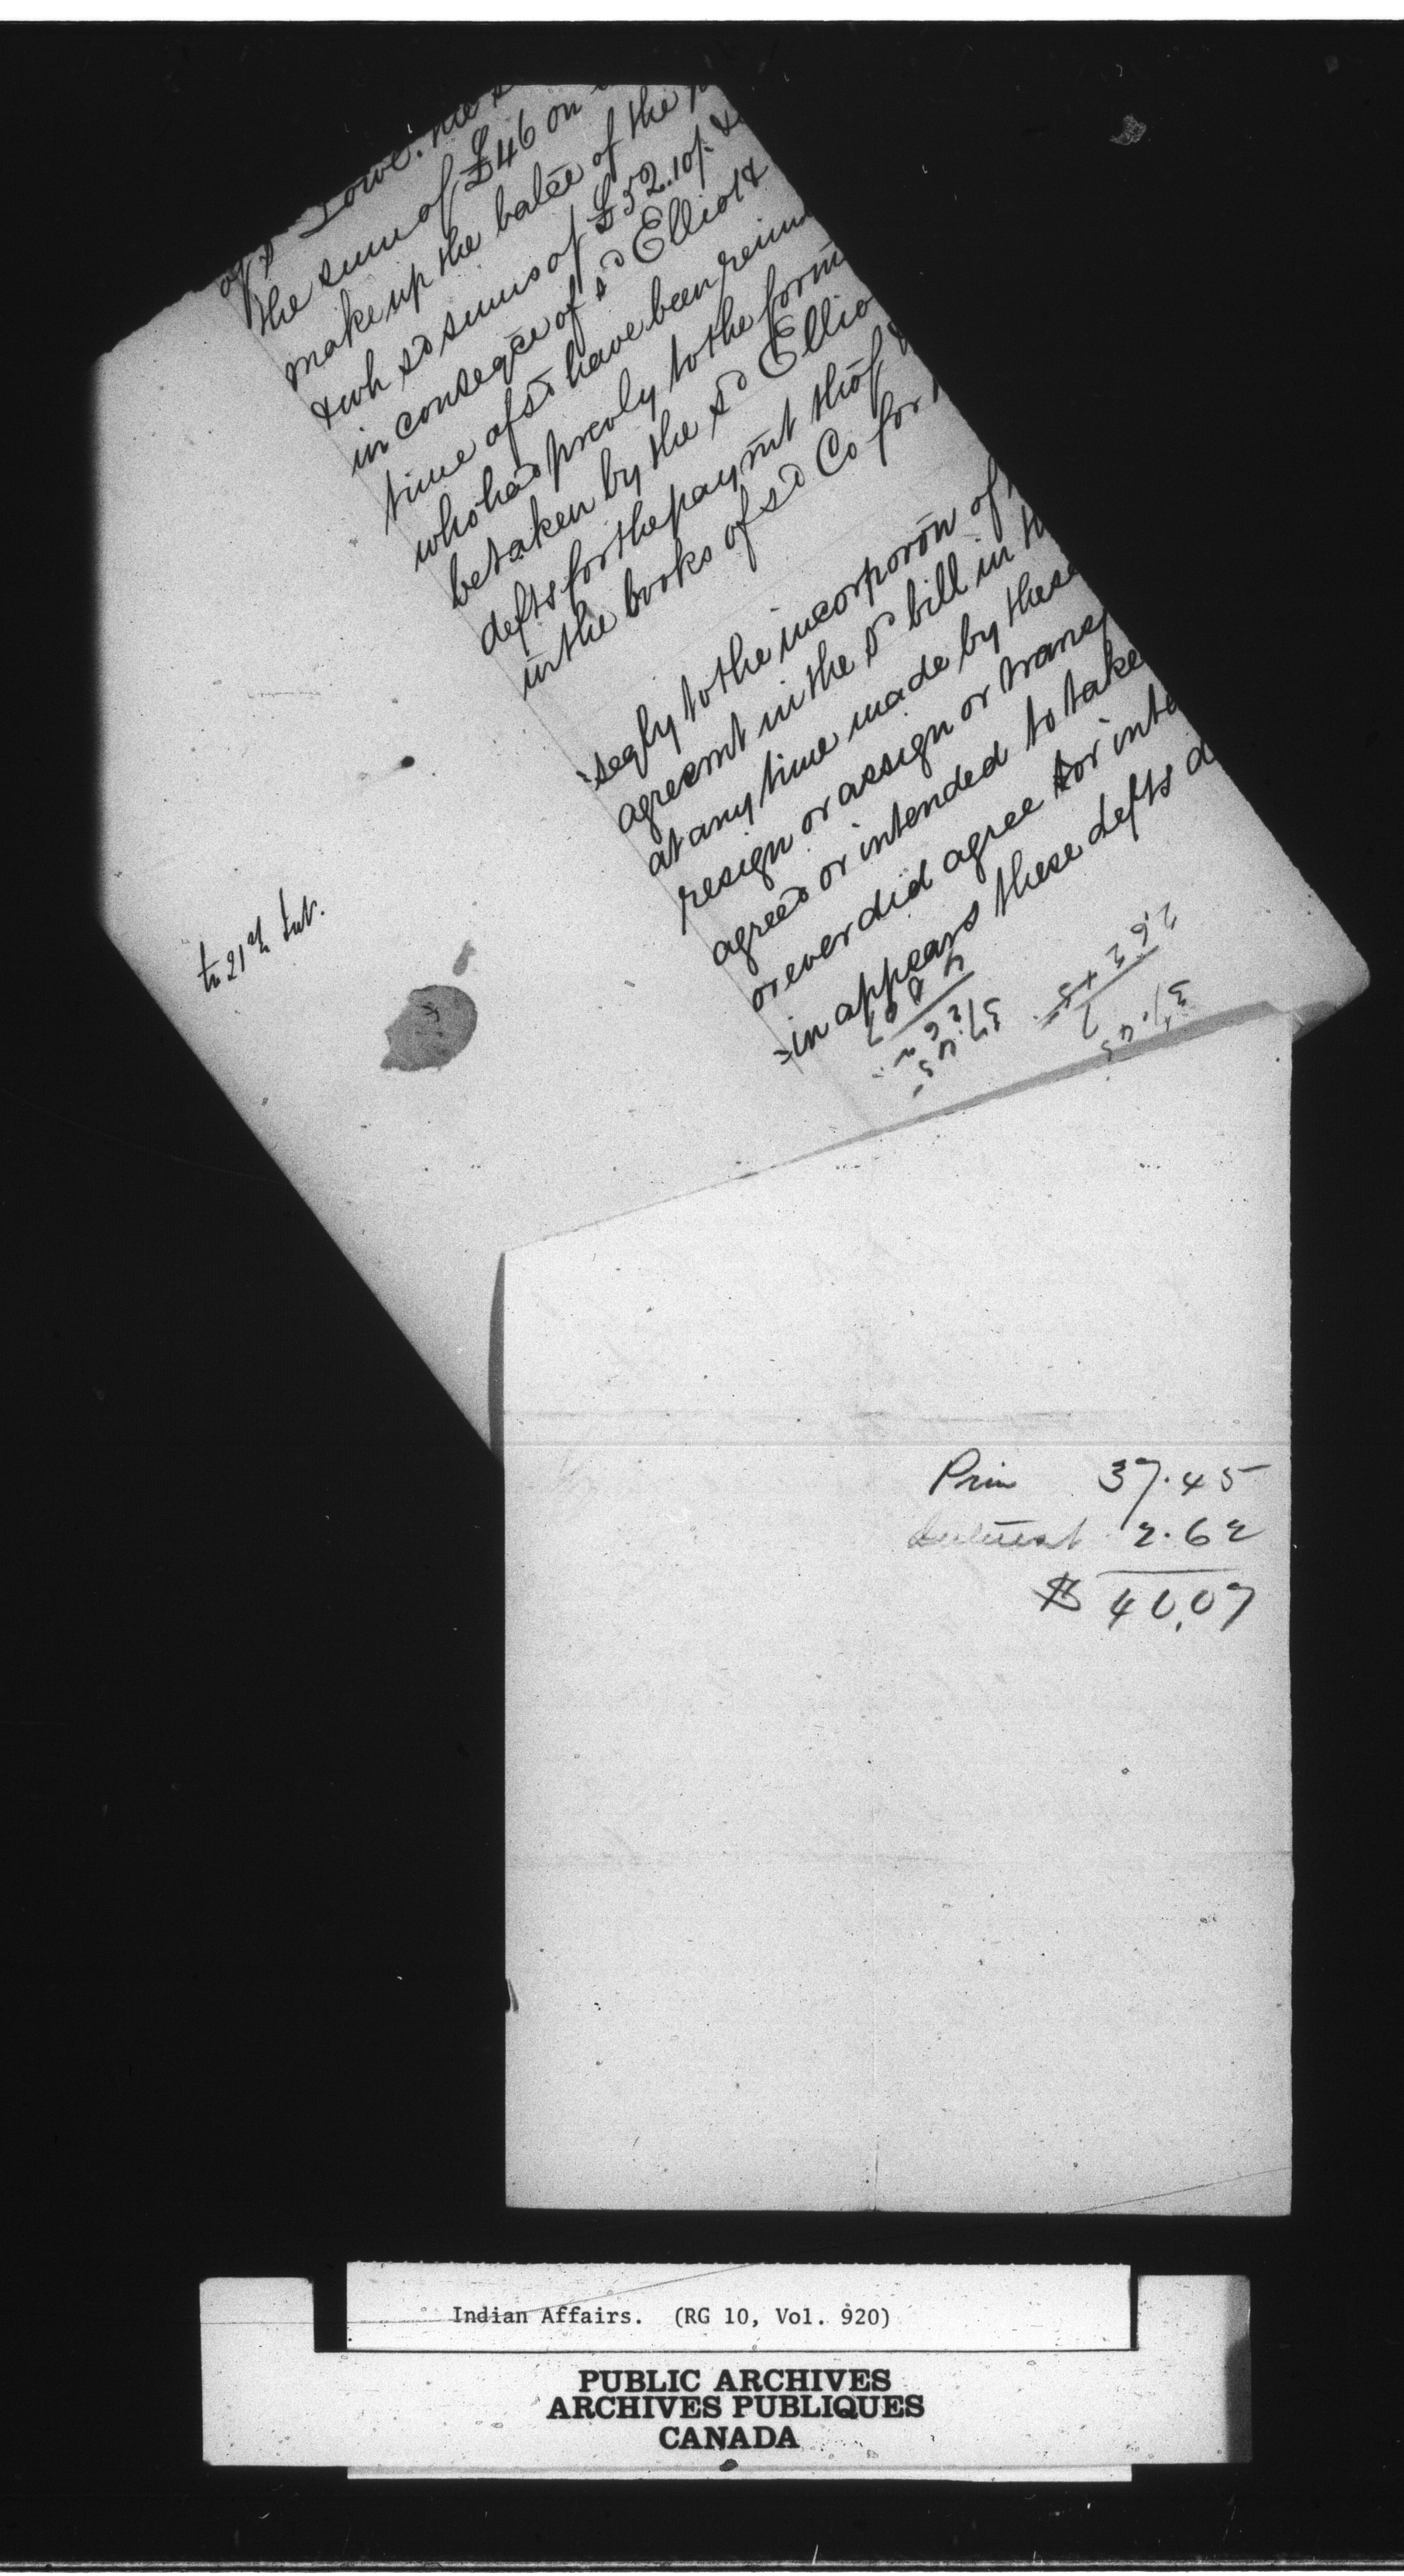 the sum of £46 on
make up the balce of the
& wh sd sums of £52.10/. &
in conseqce of sd Elliot &
time afsd have been reim
who had prevly to the form
be taken by the sd Ellio
defts for the paymt thof
in the books of sd Co for
seqly to the incorporon of
agreemt in the sd bill in th
at any time made by these
resign or assign or transf
agreed or intended to take
or ever did agree for inte
in appears these defts d
2.62
37.45
37.45
to 21st Int.
Prin 37.45
Interest 2.62
$ 40.07
Indian Affairs. (RG 10, Vol. 920)
PUBLIC ARCHIVES
ARCHIVES PUBLIQUES
CANADA